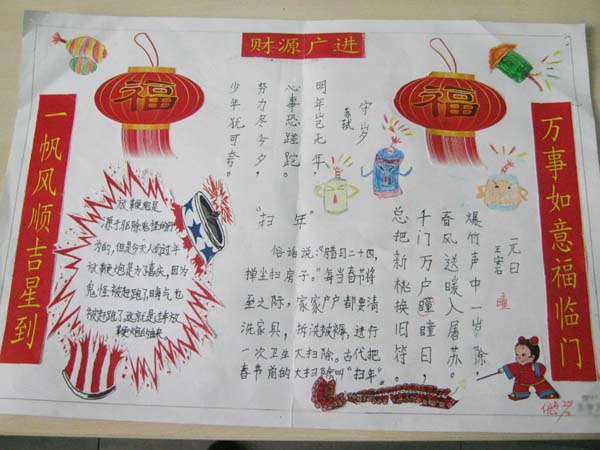 财源广进
一帆风顺吉星到
万事如意福临门
福
福
守岁
苏轼
明年岂无年，
心事恐蹉跎。
努力尽今夕，
少年犹可夸。
元日
王安石
爆竹声中一岁除，
春风送暖入屠苏。
千门万户瞳瞳日，
总把新桃换旧符。
瞳
“扫年”
俗话说：“腊月二十四，
掸尘扫房子。”每当春节将
至之际，家家户户都要清
洗家具，拆洗被褥，进行
一次卫生大扫除，古代把
春节前的大扫除叫“扫年”
放鞭炮是
源于驱除鬼怪的行
为的，但是今天人们过年
放鞭炮是为了喜庆，因为
鬼怪被赶跑了，晦气也
被赶跑了，这就是过年放
鞭炮的由来。